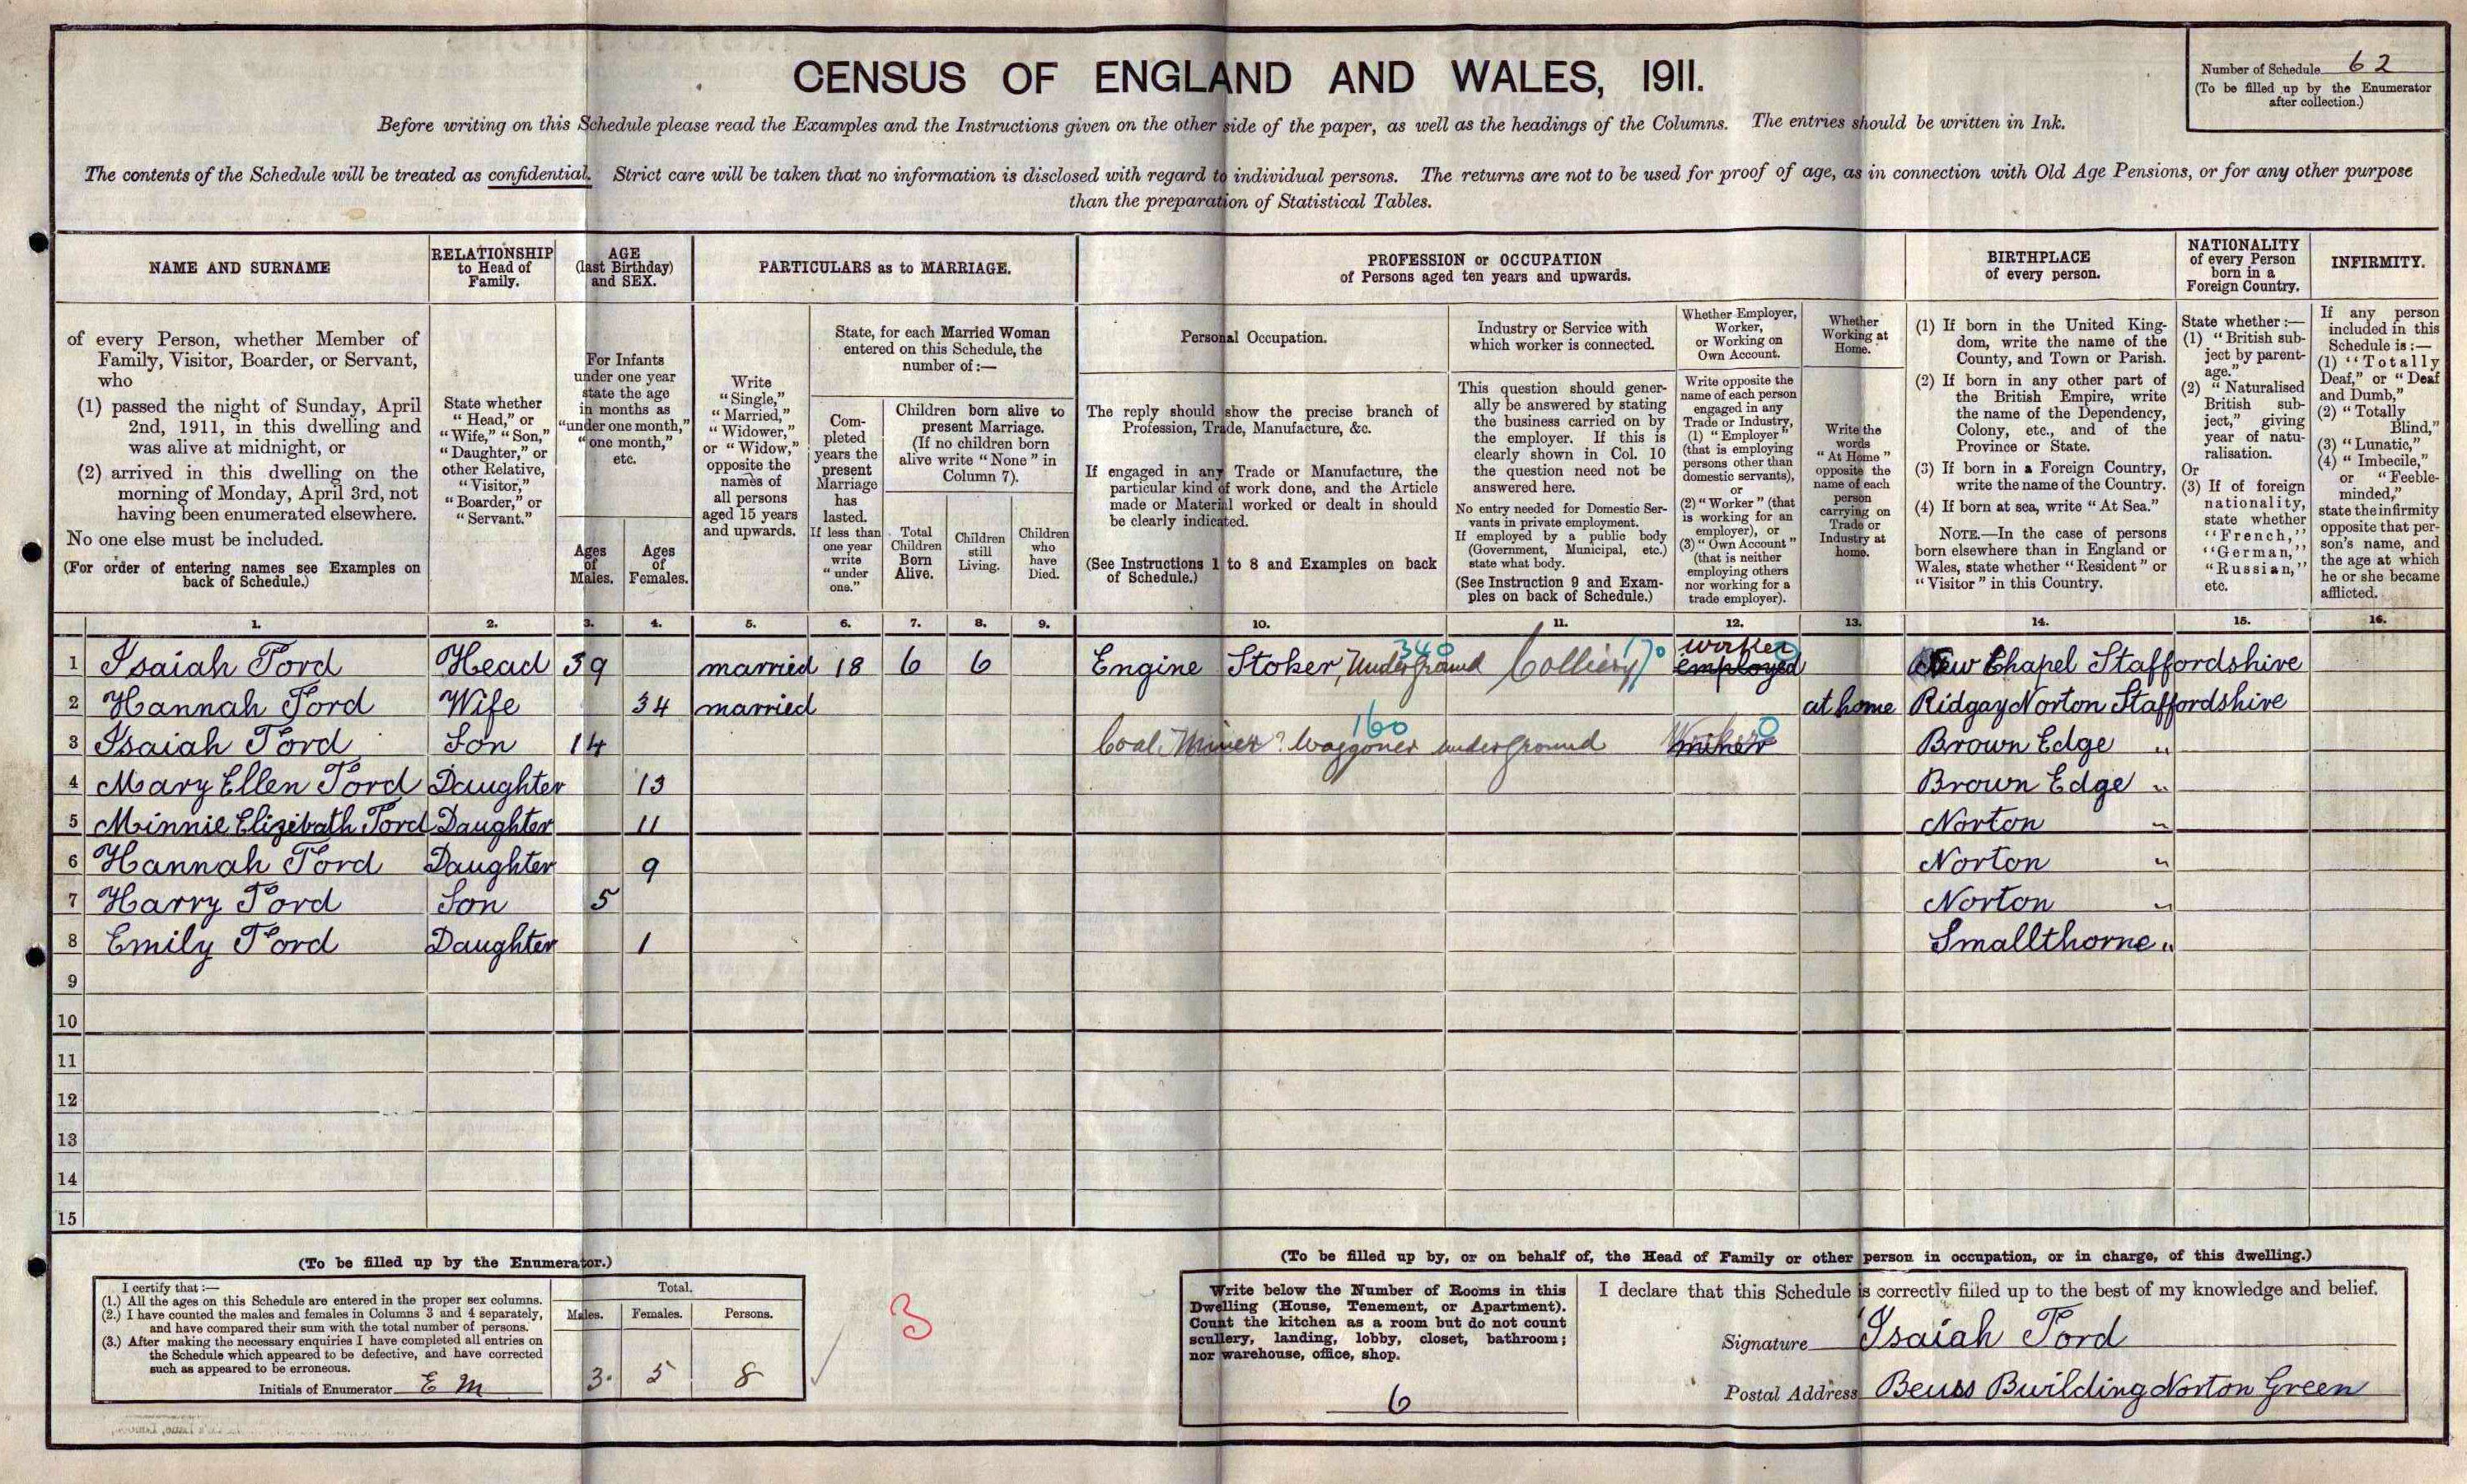 CENSUS OF ENGLAND AND WALES, 1911.
Number of Schedule 62
(To be filled up by the Enumerator
after collection.)
Before writing on this Schedule please read the Examples and the Instructions given on the other side of the paper, as well as the headings of the Columns. The entries should be written in Ink.
The contents of the Schedule will be treated as confidential. Strict care will be taken that no information is disclosed with regard to individual persons. The returns are not to be used for proof of age, as in connection with Old Age Pensions, or for any other purpose
than the preparation of Statistical Tables.
NAME AND SURNAME
of every Person, whether Member of
Family, Visitor, Boarder, or Servant,
who
(1) passed the night of Sunday, April
2nd, 1911, in this dwelling and
was alive at midnight, or
(2) arrived in this dwelling on the
morning of Monday, April 3rd, not
having been enumerated elsewhere.
No one else must be included.
(For order of entering names see Examples on
back of Schedule.)
RELATIONSHIP
to Head of
Family.
State whether
"Head," or
"Wife," "Son,"
"Daughter," or
other Relative,
"Visitor,"
"Boarder," or
"Servant."
AGE
(last Birthday)
and SEX.
For Infants
under one year
state the age
in months as
"under one month,"
"one month,"
etc.
Ages
of
Males.
Ages
of
Females.
PARTICULARS as to MARRIAGE.
Write
"Single,"
"Married,"
"Widower,"
or "Widow,"
opposite the
names of
all persons
aged 15 years
and upwards.
State, for each Married Woman
entered on this Schedule, the
number of:—
Com-
pleted
years the
present
Marriage
has
lasted.
If less than
one year
write
"under
one."
Children born alive to
present Marriage.
(If no children born
alive write "None" in
Column 7).
Total
Children
Born
Alive.
Children
still
Living.
Children
who
have
Died.
PROFESSION or OCCUPATION
of Persons aged ten years and upwards.
Personal Occupation.
The reply should show the precise branch of
Profession, Trade, Manufacture, &c.
If engaged in any Trade or Manufacture, the
particular kind of work done, and the Article
made or Material worked or dealt in should
be clearly indicated.
(See Instructions 1 to 8 and Examples on back
of Schedule.)
Industry or Service with
which worker is connected.
This question should gener-
ally be answered by stating
the business carried on by
the employer. If this is
clearly shown in Col. 10
the question need not be
answered here.
No entry needed for Domestic Ser-
vants in private employment.
If employed by a public body
(Government, Municipal, etc.)
state what body.
(See Instruction 9 and Exam-
ples on back of Schedule.)
Whether Employer,
Worker,
or Working on
Own Account.
Write opposite the
name of each person
engaged in any
Trade or Industry,
(1) "Employer"
(that is employing
persons other than
domestic servants),
or
(2) "Worker" (that
is working for an
employer), or
(3) "Own Account"
(that is neither
employing others
nor working for a
trade employer).
Whether
Working at
Home.
Write the
words
"At Home"
opposite the
name of each
person
carrying on
Trade or
Industry at
home.
BIRTHPLACE
of every person.
(1) If born in the United King-
dom, write the name of the
County, and Town or Parish.
(2) If born in any other part of
the British Empire, write
the name of the Dependency,
Colony, etc., and of the
Province or State.
(3) If born in a Foreign Country,
write the name of the Country.
(4) If born at sea, write "At Sea."
NOTE.—In the case of persons
born elsewhere than in England or
Wales, state whether "Resident" or
"Visitor" in this Country.
NATIONALITY
of every Person
born in a
Foreign Country.
State whether :—
(1) "British sub-
ject by parent-
age."
(2) "Naturalised
British sub-
ject," giving
year of natu-
ralisation.
Or
(3) If of foreign
nationality,
state whether
"French,"
"German,"
"Russian,"
etc.
INFIRMITY.
If any person
included in this
Schedule is:—
(1) "Totally
Deaf," or "Deaf
and Dumb,"
(2) "Totally
Blind,"
(3) "Lunatic,"
(4) "Imbecile,"
or "Feeble-
minded,"
state the infirmity
opposite that per-
son's name, and
the age at which
he or she became
afflicted.
1. 2. 3. 4. 5. 6. 7. 8. 9. 10. 11. 12. 13. 14. 15. 16.
340 170 worker
1 Isaiah Ford Head 39 married 18 6 6 Engine Stoker, Underground Colliery employed New Chapel Staffordshire
2 Hannah Ford Wife 34 married at home Ridgay Norton Staffordshire
160
3 Isaiah Ford Son 14 Coal Miner? Waggoner underground miner Worker 0 Brown Edge "
4 Mary Ellen Ford Daughter 13 Brown Edge "
5 Minnie Elizibath Ford Daughter 11 Norton "
6 Hannah Ford Daughter 9 Norton "
7 Harry Ford Son 5 Norton "
8 Emily Ford Daughter 1 Smallthorne "
9
10
11
12
13
14
15
(To be filled up by the Enumerator.)
I certify that:—
(1.) All the ages on this Schedule are entered in the proper sex columns.
(2.) I have counted the males and females in Columns 3 and 4 separately,
and have compared their sum with the total number of persons.
(3.) After making the necessary enquiries I have completed all entries on
the Schedule which appeared to be defective, and have corrected
such as appeared to be erroneous.
Initials of Enumerator E M
Total.
Males. Females. Persons.
3. 5 8
3
(To be filled up by, or on behalf of, the Head of Family or other person in occupation, or in charge, of this dwelling.)
Write below the Number of Rooms in this
Dwelling (House, Tenement, or Apartment).
Count the kitchen as a room but do not count
scullery, landing, lobby, closet, bathroom;
nor warehouse, office, shop.
6
I declare that this Schedule is correctly filled up to the best of my knowledge and belief.
Signature Isaiah Ford
Postal Address Beuss Bwilding Norton Green